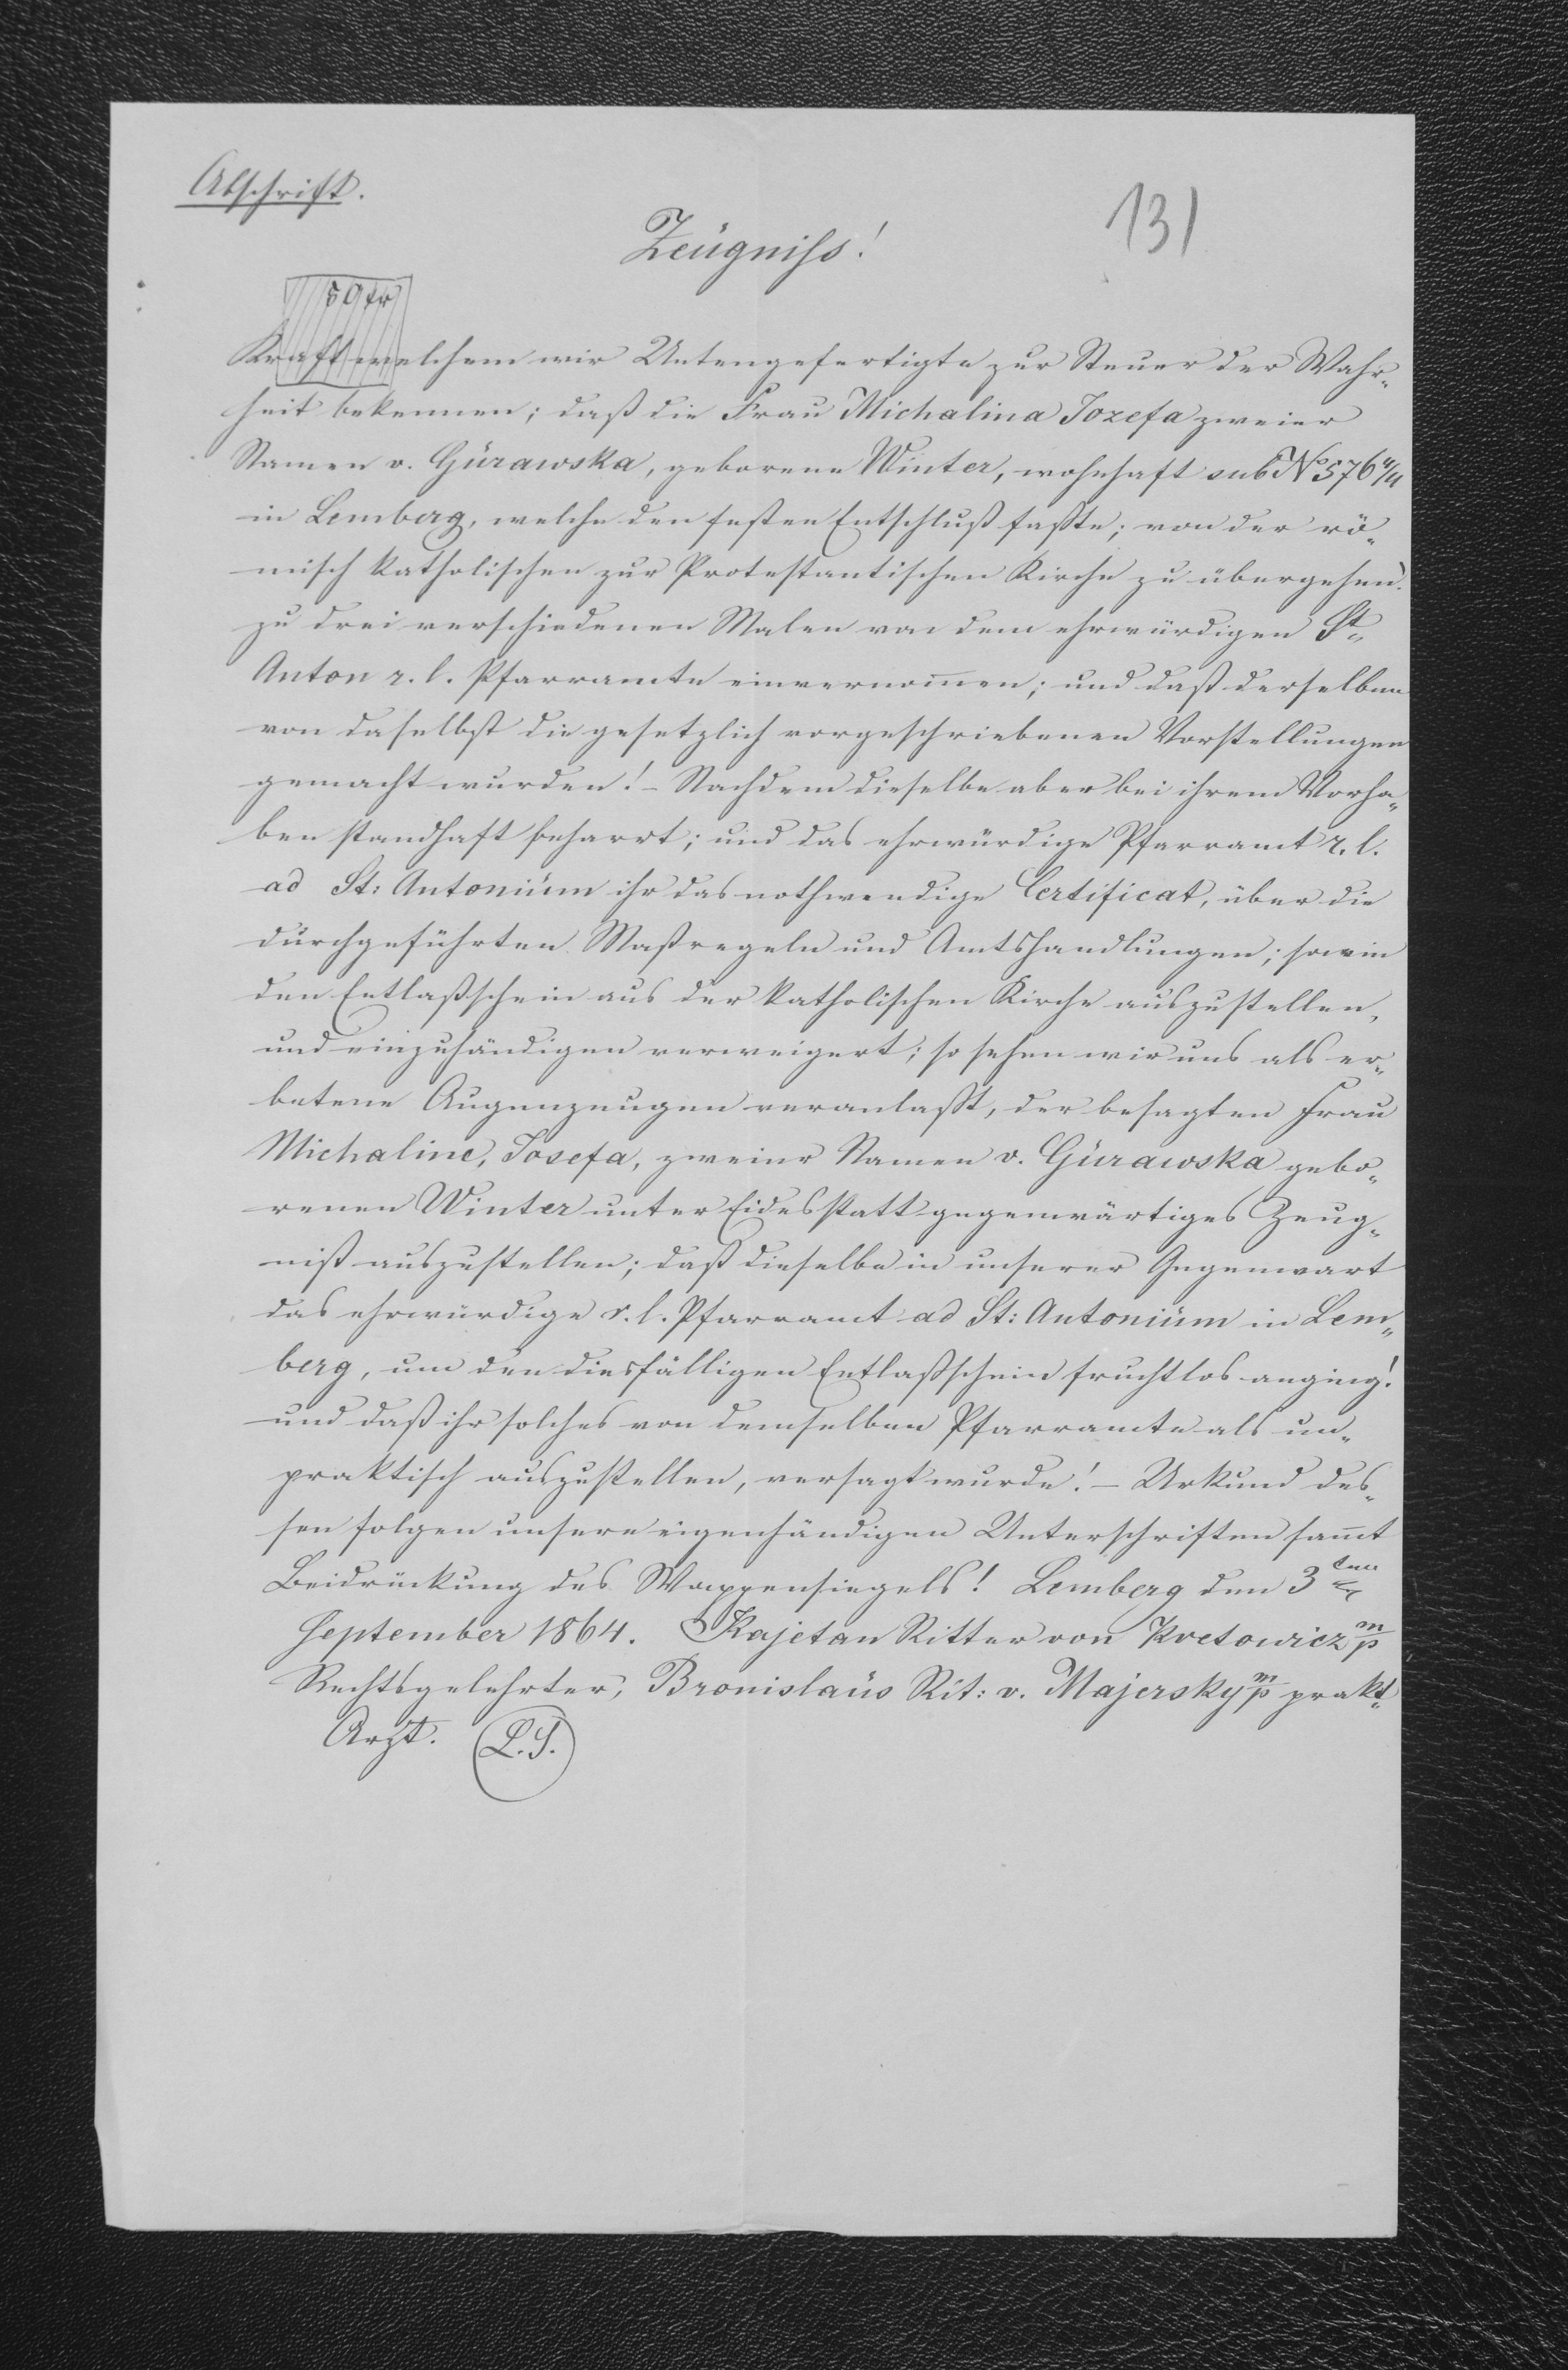 Abschrift.
131
Zeügniss!
50 xr
Kraft welchem wir Untengefertigte zur Steuer der Wahr„
heit bekennen; daß die Frau Michalina Jozefa zweier
Namen v. Gürawska, geborene Winter, wohnhaft sub No 576 4/4
in Lemberg, welche den festen Entschluß faßte; von der rö„
misch katholischen zur Protestantischen Kirche zu übergehen.
zu drei verschiedenen Malen von dem ehrwürdigen St„
Anton r. l. Pfarramte einvernom̄en; und daß derselben
von daselbst die gesetzlich vorgeschriebenen Vorstellungen
gemacht wurden! – Nachdem dieselbe aber bei ihrem Vorha„
ben standhaft beharrt; und das ehrwürdige Pfarramt r. l.
ad St: Antoniüm ihr das nothwendige Certificat, über die
durchgeführten Maßregeln und Amtshandlungen; sowie
den Entlaßschein aus der katholischen Kirche auszustellen,
und einzuhändigen verweigert; so sehen wir uns als er„
betene Augenzeugen veranlaßt, der besagten Frau
Michaline, Josefa, zweier Namen v. Gürawska gebo„
renen Winter unter Eidesstatt gegenwärtiges Zeug„
niß auszustellen; daß dieselbe in unserer Gegenwart
das ehrwürdige r. l. Pfarramt ad St: Antoniüm in Lem„
berg, um den diesfälligen Entlaßschein fruchtlos anging!
und daß ihr solches von demselben Pfarramte als un„
praktisch auszustellen, versagt wurde! – Urkund des„
sen folgen unsere eigenhändigen Unterschriften sam̄t
Beidrückung des Wappensiegels! Lemberg den 3ten
September 1864. Kajetan Ritter von Kretowicz m/p
Rechtsgelehrter, Bronislaüs Rit: v. Majersky m/p prakt„
Arzt. L. S.